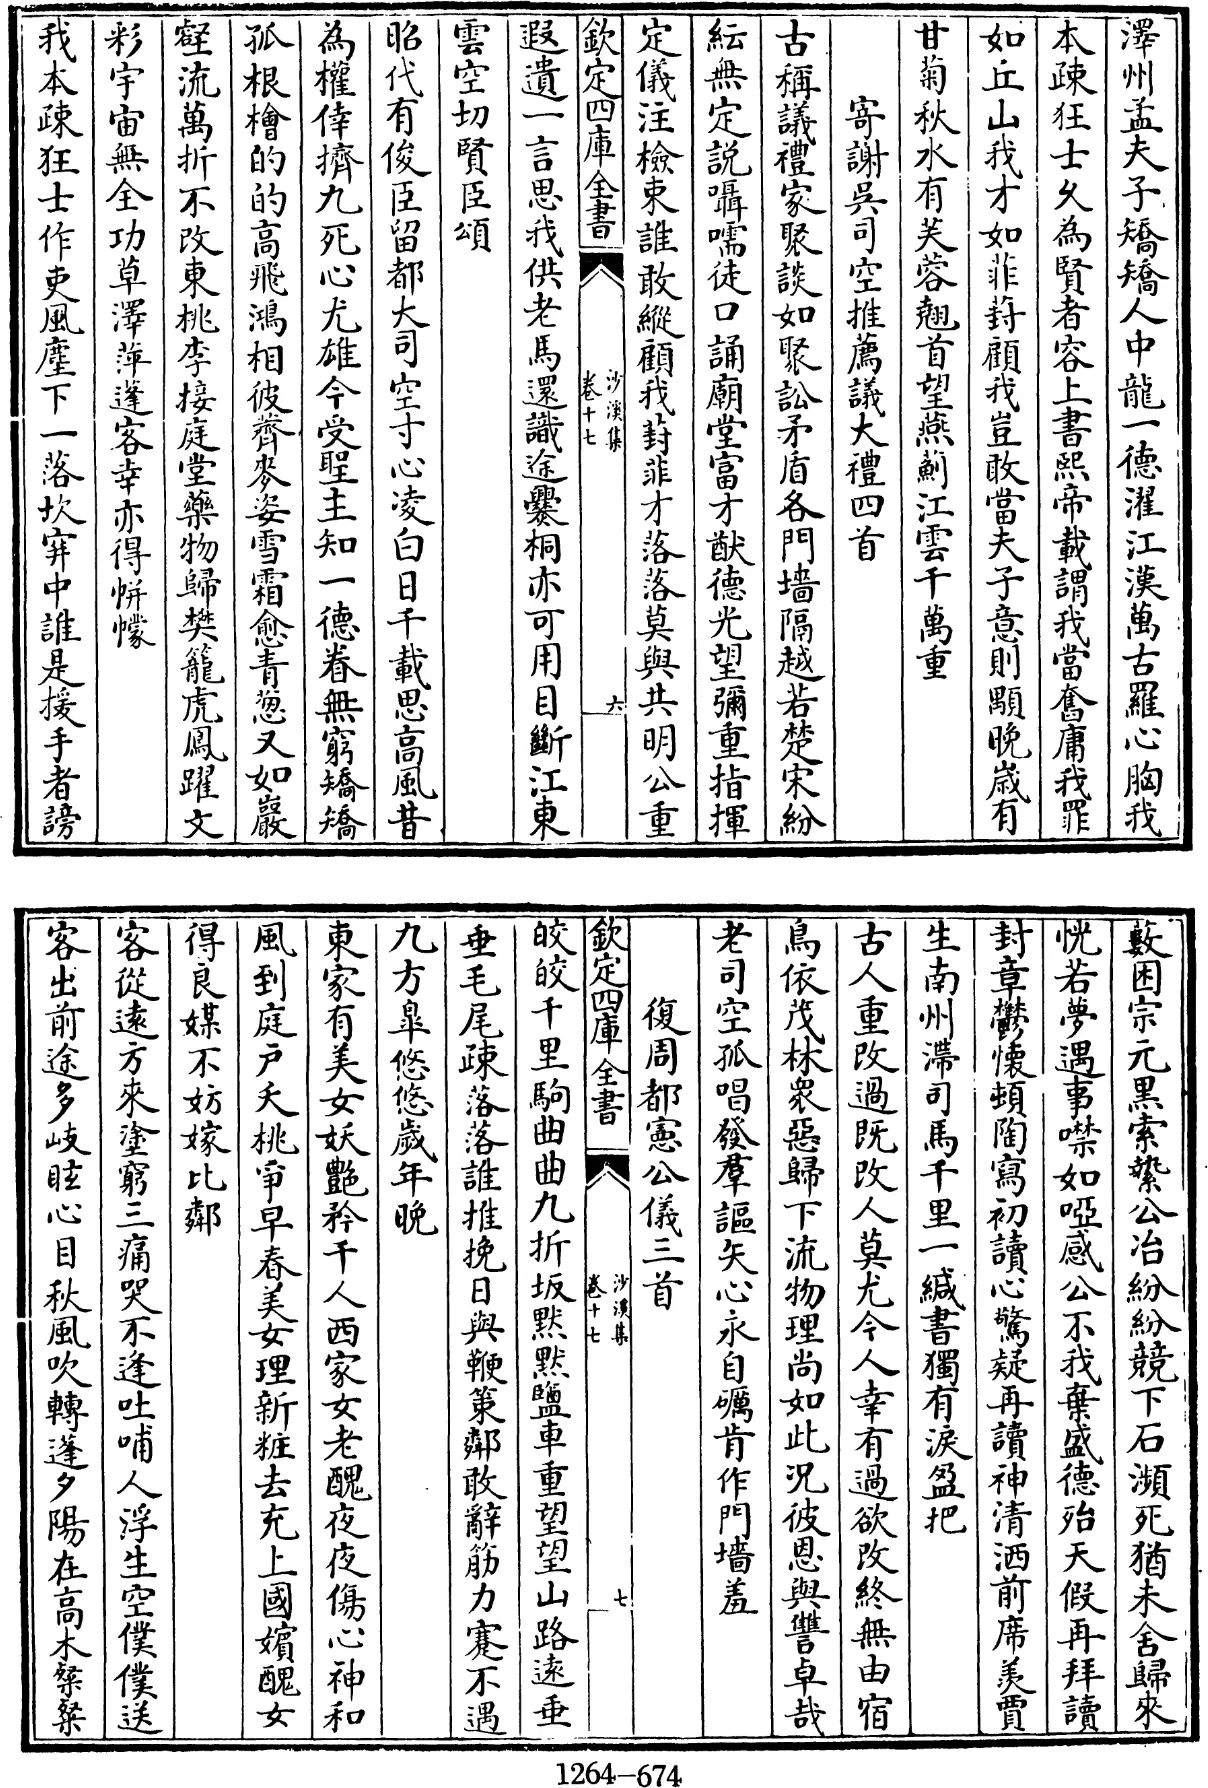 澤州孟夫子矯矯人中龍一德濯江漢萬古羅心胸我
本疎狂士久為賢者容上書熙帝載謂我當奮庸我罪
如丘山我才如菲葑顧我豈敢當夫子意則顒晚歲有
甘菊秋水有芙蓉翹首望燕薊江雲千萬重
寄謝吳司空推薦議大禮四首
古稱議禮家聚談如聚訟矛盾各門墻隔越若楚宋紛
紜無定說囁嚅徒口誦廟堂富才猷德光望彌重指揮
定儀注檢束誰敢縱顧我葑菲才落落莫與共明公重
欽定四庫全書
沙溪集
卷十七
六
遐遺一言思我供老馬還識途爨桐亦可用目斷江東
雲空切賢臣頌
昭代有俊臣留都大司空寸心凌白日千載思高風昔
為權倖擠九死心尤雄今受聖主知一德眷無窮矯矯
孤根檜的的高飛鴻相彼薺麥姿雪霜愈青葱又如巖
壑流萬折不改東桃李接庭堂藥物歸樊籠虎鳳躍文
彩宇宙無全功草澤萍蓬客幸亦得帡幪
我本疎狂士作吏風塵下一落坎穽中誰是援手者謗
藪困宗元黑索縶公冶紛紛競下石瀕死猶未舍歸來
恍若夢遇事噤如啞感公不我棄盛德殆天假再拜讀
封章鬱懷頓陶寫初讀心驚疑再讀神清洒前席羨賈
生南州滯司馬千里一緘書獨有淚盈把
古人重改過既改人莫尤今人幸有過欲改終無由宿
鳥依茂林衆惡歸下流物理尚如此况彼恩與讐卓哉
老司空孤唱發羣謳矢心永自礪肯作門墻羞
復周都憲公儀三首
欽定四庫全書
沙溪集
卷十七
七
皎皎千里駒曲曲九折坂默默鹽車重望望山路遠垂
垂毛尾疎落落誰推挽日與鞭策鄰敢辭筋力蹇不遇
九方臯悠悠歲年晚
東家有美女妖艷矜千人西家女老醜夜夜傷心神和
風到庭戶夭桃爭早春美女理新粧去充上國嬪醜女
得良媒不妨嫁比鄰
客從遠方來塗窮三痛哭不逢吐哺人浮生空僕僕送
客出前途多岐眩心目秋風吹轉蓬夕陽在高木粲粲
1264—674